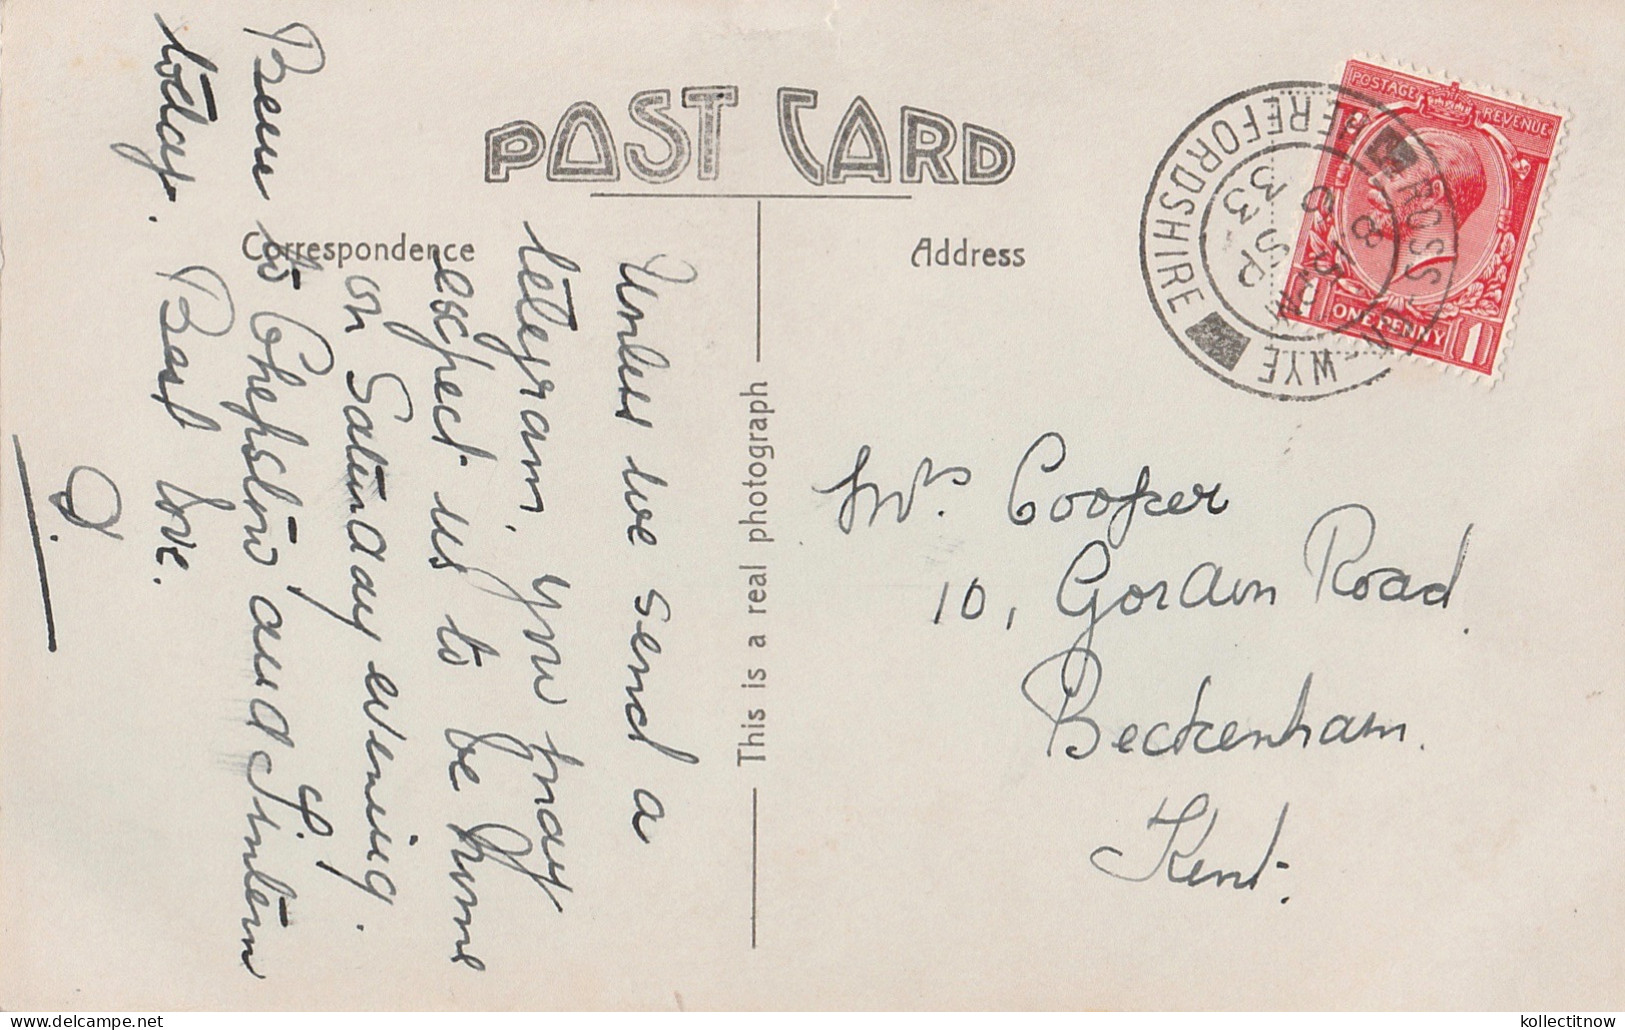 POST CARD
Correspondence
Address
This is a real photograph
Unless we send a
telegram, you may
expect us to be home
on Saturday evening.
Been to Chepstow and Tintern
today. Best love.
D.
Mrs. Cooper
10, Gordon Road.
Beckenham.
Kent.
POSTAGE REVENUE
ONE PENNY
1 1
ROSS-ON-WYE
HEREFORDSHIRE
kollectitnow